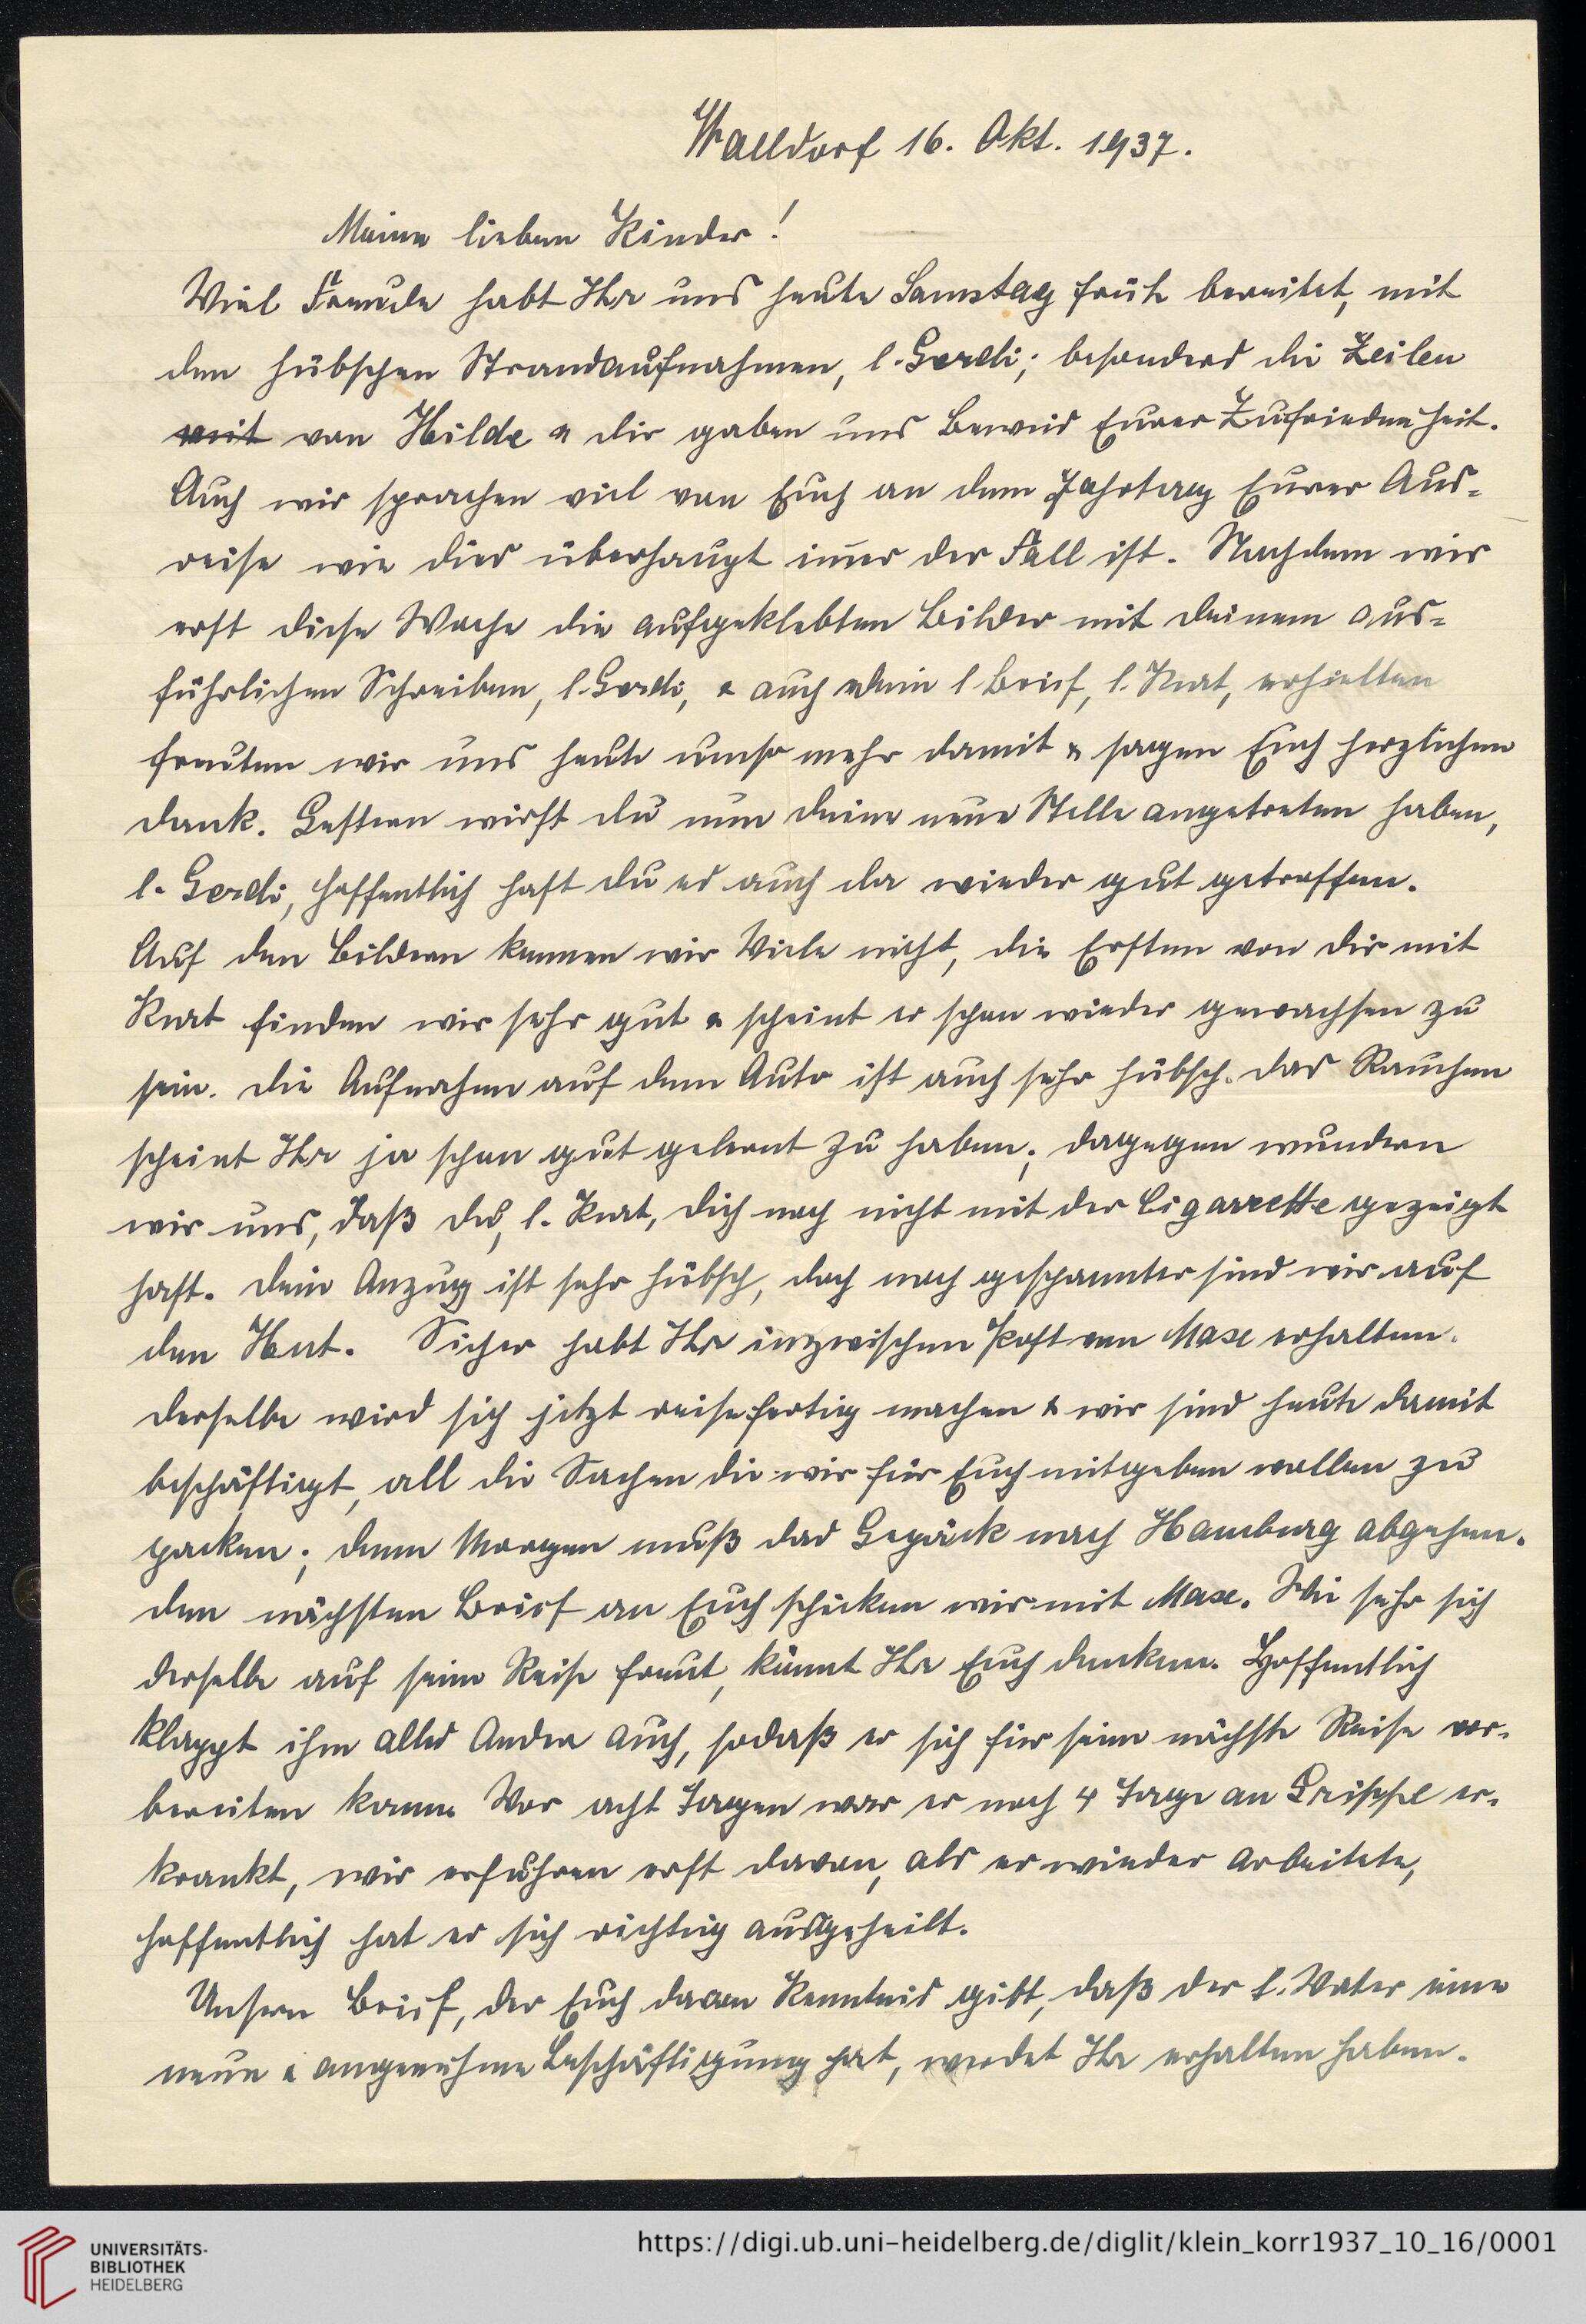 Walldorf 16. Okt. 1937.
Meine lieben Kinder!
Viel Freude habt Ihr uns heute Samstag früh bereitet, mit
den hübschen Strandaufnahmen, l. Gerdi; besonders die Zeilen
mit von Hilde & dir gaben uns Beweis Eurer Zufriedenheit.
Auch wir sprachen viel von Euch an dem Jahrtag Eurer Aus-
reise wie dies überhaupt im̅er der Fall ist. Nachdem wir
erst diese Woche die aufgeklebten Bilder mit deinem aus-
führlichen Schreiben, l. Gerdi, & auch dein l. Brief, l. Kurt, erhielten
freuten wir uns heute umso mehr damit & sagen Euch herzlichen
Dank. Gestern wirst du nun deine neue Stelle angetreten haben,
l. Gerdi, hoffentlich hast du es auch da wieder gut getroffen.
Auf den Bildern kennen wir Viele nicht, die Ersten von dir mit
Kurt finden wir sehr gut & scheint er schon wieder gewachsen zu
sein. Die Aufnahme auf dem Auto ist auch sehr hübsch. Das Rauchen
scheint Ihr ja schon gut gelernt zu haben; dagegen wundern
wir uns, daß du, l. Kurt, dich noch nicht mit der Cigarrette gezeigt
hast. Dein Anzug ist sehr hübsch, doch noch gespannter sind wir auf
den Hut. Sicher habt Ihr inzwischen Post von Max erhalten.
Derselbe wird sich jetzt reisefertig machen & wir sind heute damit
beschäftigt, all die Sachen die wir für Euch mitgeben wollen zu
packen; denn Morgen muß das Gepäck nach Hamburg abgehen.
Den nächsten Brief an Euch schicken wir mit Max. Wie sehr sich
derselbe auf seine Reise freut, könnt Ihr Euch denken. Hoffentlich
klappt ihm alles Andre auch, sodaß er sich für seine nächste Reise vor-
bereiten kann. Vor acht Tagen war er noch 4 Tage an Grippe er-
krankt, wir erfuhren erst davon, als er wieder arbeitete,
hoffentlich hat er sich richtig ausgeheilt.
Unsern Brief, der Euch davon Kenntnis gibt, daß der l. Vater eine
neue & angenehme Beschäftigung hat, werdet Ihr erhalten haben.
UNIVERSITÄTS-
BIBLIOTHEK
HEIDELBERG
https://digi.ub.uni-heidelberg.de/diglit/klein_korr1937_10_16/0001